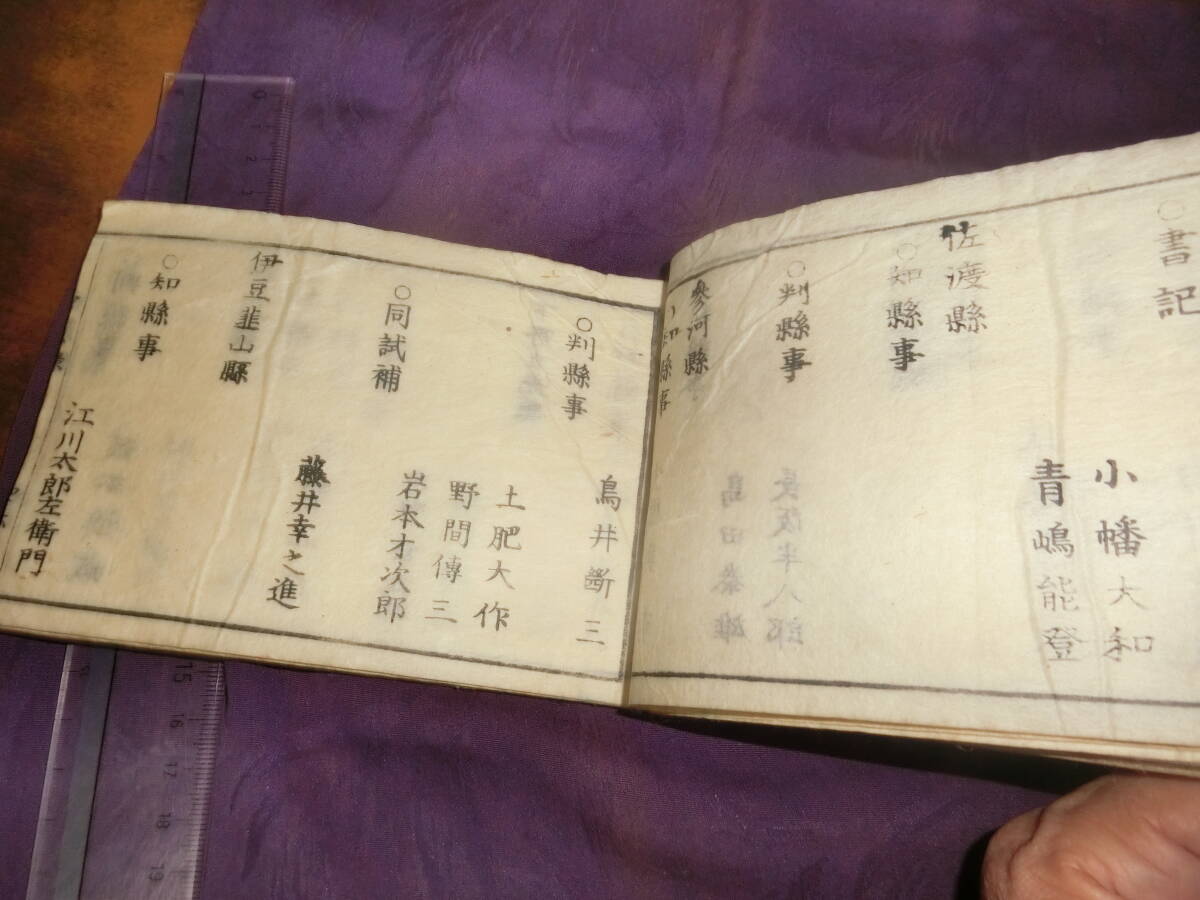 ○書記
小幡大和
青嶋能登
佐渡縣
○知縣事
○判縣事
參河縣
知縣事
○判縣事
鳥井斷三
土肥大作
野間傳三
岩本才次郎
○同試補
藤井幸之進
伊豆韮山縣
○知縣事
江川太郎左衛門
0
1
2
3
15
16
17
18
19